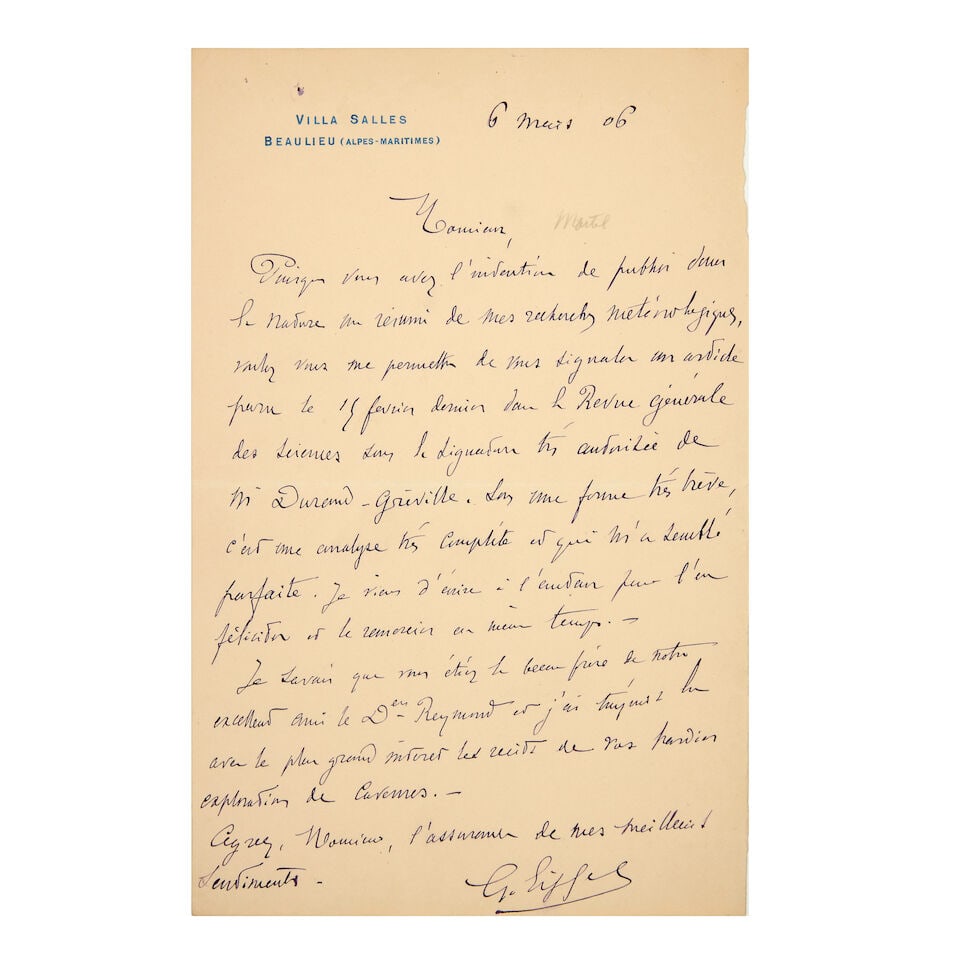 VILLA SALLES
BEAULIEU (ALPES-MARITIMES)
6 Mars 06
Monsieur,
Martel
Puisque vous avez l'intention de publier dans
la Nature un résumé de mes recherches météorologiques,
voulez vous me permettre de vous signaler un article
paru le 15 février dernier dans la Revue générale
des sciences sous la signature très autorisée de
Mr Durand-Gréville. Sous une forme très brève,
c'est une analyse très complète et qui m'a semblé
parfaite. Je viens d'écrire à l'auteur pour l'en
féliciter et le remercier en même temps. —
Je savais que vous étiez le beau frère de notre
excellent ami le Deur Reymond et j'ai toujours lu
avec le plus grand intérêt les récits de vos hardies
explorations de Cavernes. —
Agréez, Monsieur, l'assurance de mes meilleurs
sentiments -
G. Eiffel